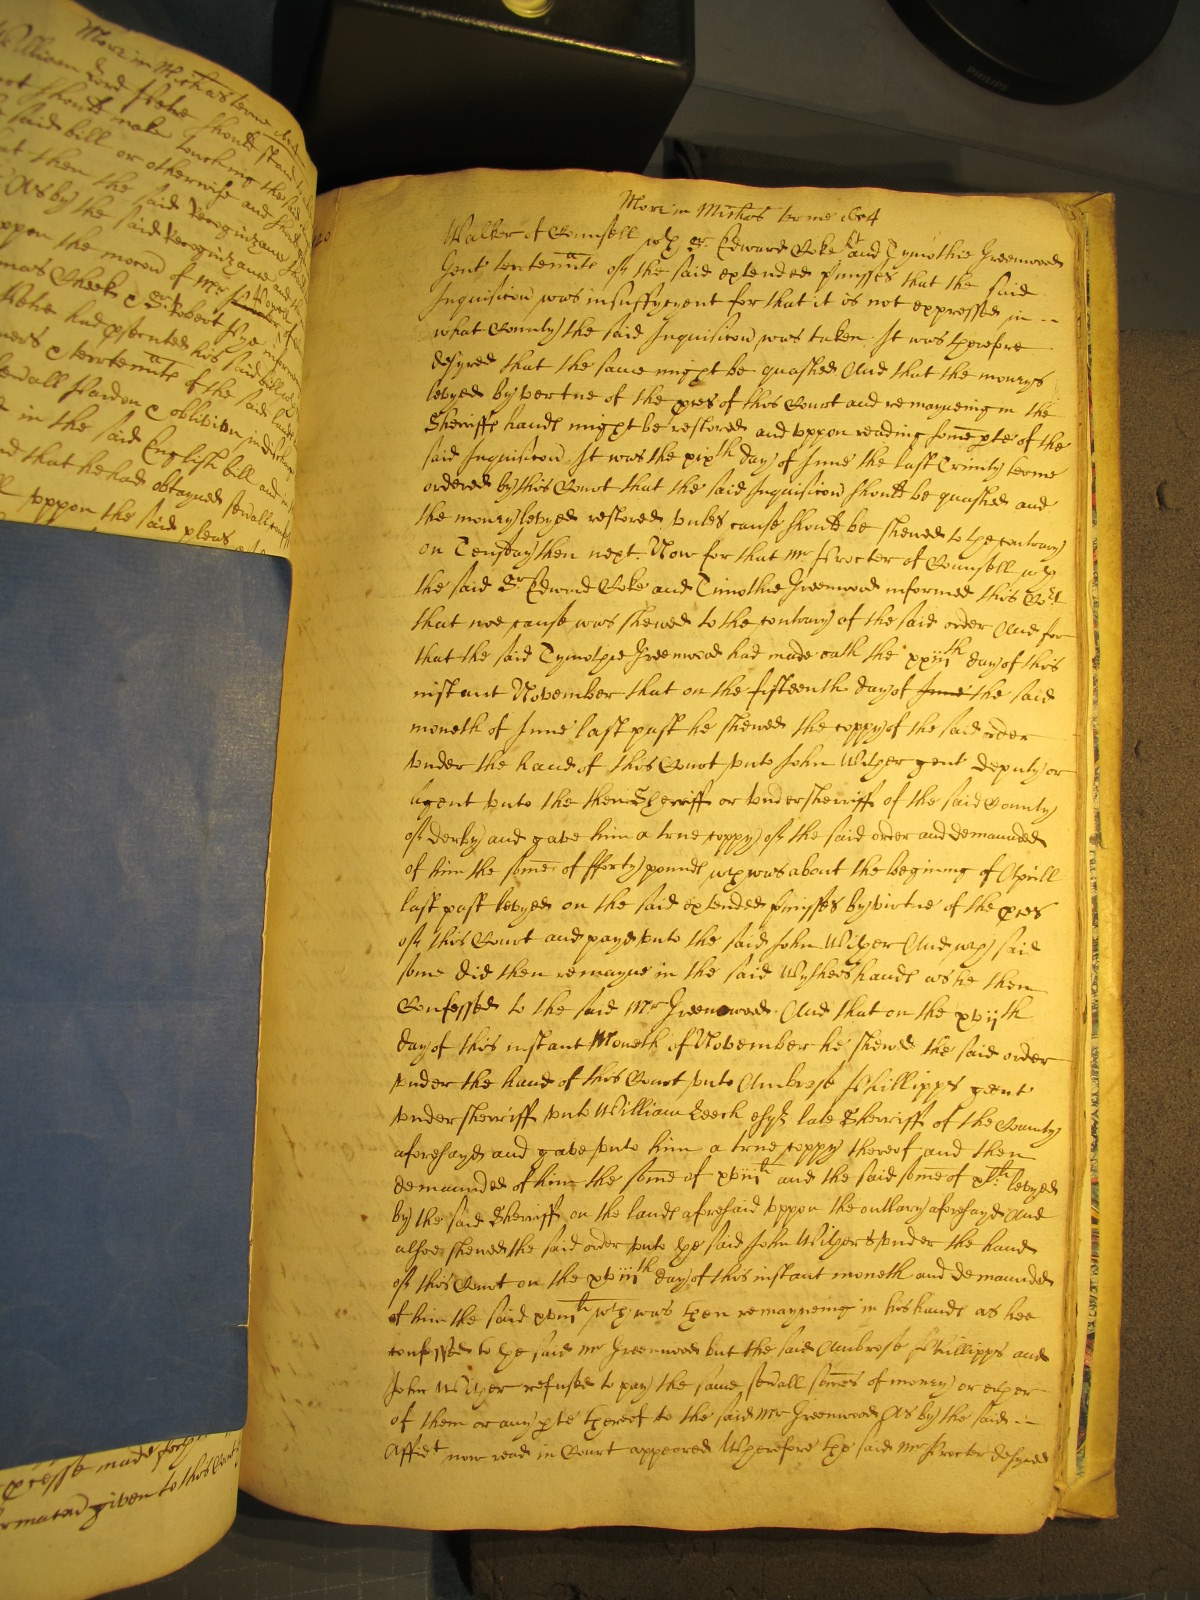 More in Michas terme 1604
William Lord
not should make touching the said
said bill or otherwise and
at then the said Recognizaunce
As by the said Recognizaunce and
uppon the mocon of Mr
mas Cheeke Sr Robert
had exhibited his said bill
Terretenants of the said
Pardon & oblivion
in the said English bill and
nd that he had obtayned severall
uppon the said pleas
expresse made
rmacon given to this Court
More in Michas terme 1604
Walter of Counsell wth Sr Edward Coke kt and Tymothie Greenwood
Gent terretenants of the said extended pmisses that the said
Inquisicon was insuffycyent for that it is not expressed in --
what County the said Inquisicon was taken. It was therefore
desyred that the same might be quashed And that the moneys
levyed by vertue of the pces of this Court and remayneing in the
Sheriffs hands might be restored and uppon reading some pte of the
said Inquisicon It was the xixth day of June the last Trinity terme
ordered by this Court that the said Inquisicon should be quashed and
the money levyed restored unles cause should be shewed to the contrary
on Teusday then next. Now for that Mr Procter of Counsell wth
the said Sr Edward Coke and Timothie Greenwood informed this Cort
that noe cause was shewed to the contrary of the said order And for
that the said Tymothie Greenwood had made oath the xxiiith day of this
instant November that on the fifteenth day of June the said
moneth of June last past he shewed the coppy of the said order
under the hand of this Court unto John Wither gent deputy or
Agent unto the then Sherriff or undersherriff of the said County
of Derby and gave him a true coppy of the said order and demaunded
of him the some of fforty pounds wch was about the begining of Aprill
last past levyed on the said extended pmisses by virtue of the pces
of this Court and payd unto the said John Wither And wch said
some did then remayne in the said Wythers hands as he then
Confessed to the said Mr Greenwood. And that on the xviith
day of this instant Moneth of November he shewed the said order
under the hand of this Court unto Ambrose Phillipps gent
undersherriff unto William Leech esqr late Sherriff of the County
aforesayd and gave unto him a true coppy thereof and then
demaunded of him the some of xviiith and the said some of xlth levyed
by the said Sherriff on the lands aforesaid uppon the outlary aforesayd And
alsoe shewed the said order unto the said John Withers under the hand
of this Court on the xviiith day of this instant moneth and demaunded
of him the said xviiith wch was then remayneing in his hands as hee
confessed to the said Mr Greenwood but the said Ambrose Phillipps and
John Wither refused to pay the same severall somes of money or either
of them or any pte thereof to the said Mr Greenwood As by the said --
Affidt now read in Court appeared Wherefore the said Mr Procter desyred